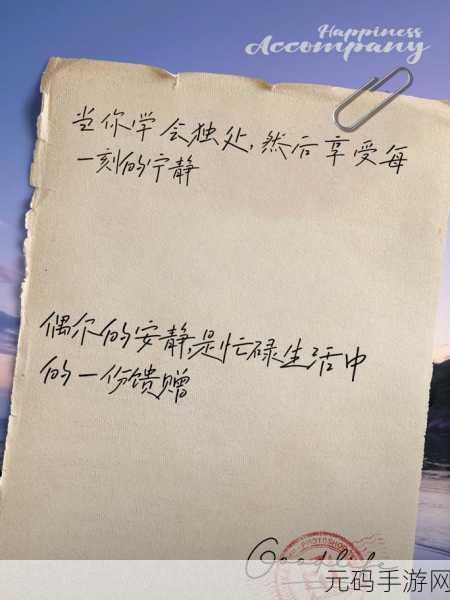 Happiness
Accompany
当你学会独处,然后享受每
一刻的宁静
偶尔的安静,是忙碌生活中
的一份馈赠
Good life
元码手游网